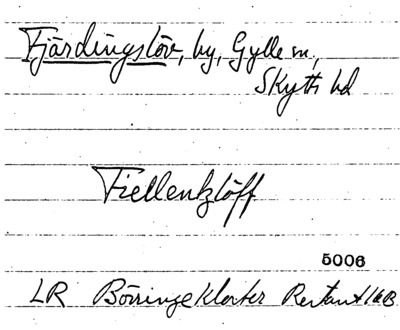 Fjärdingslöv, by, Gylle sn,
Skytts hd
Fiellentzlöff
5006
LR Börringekloster Restant